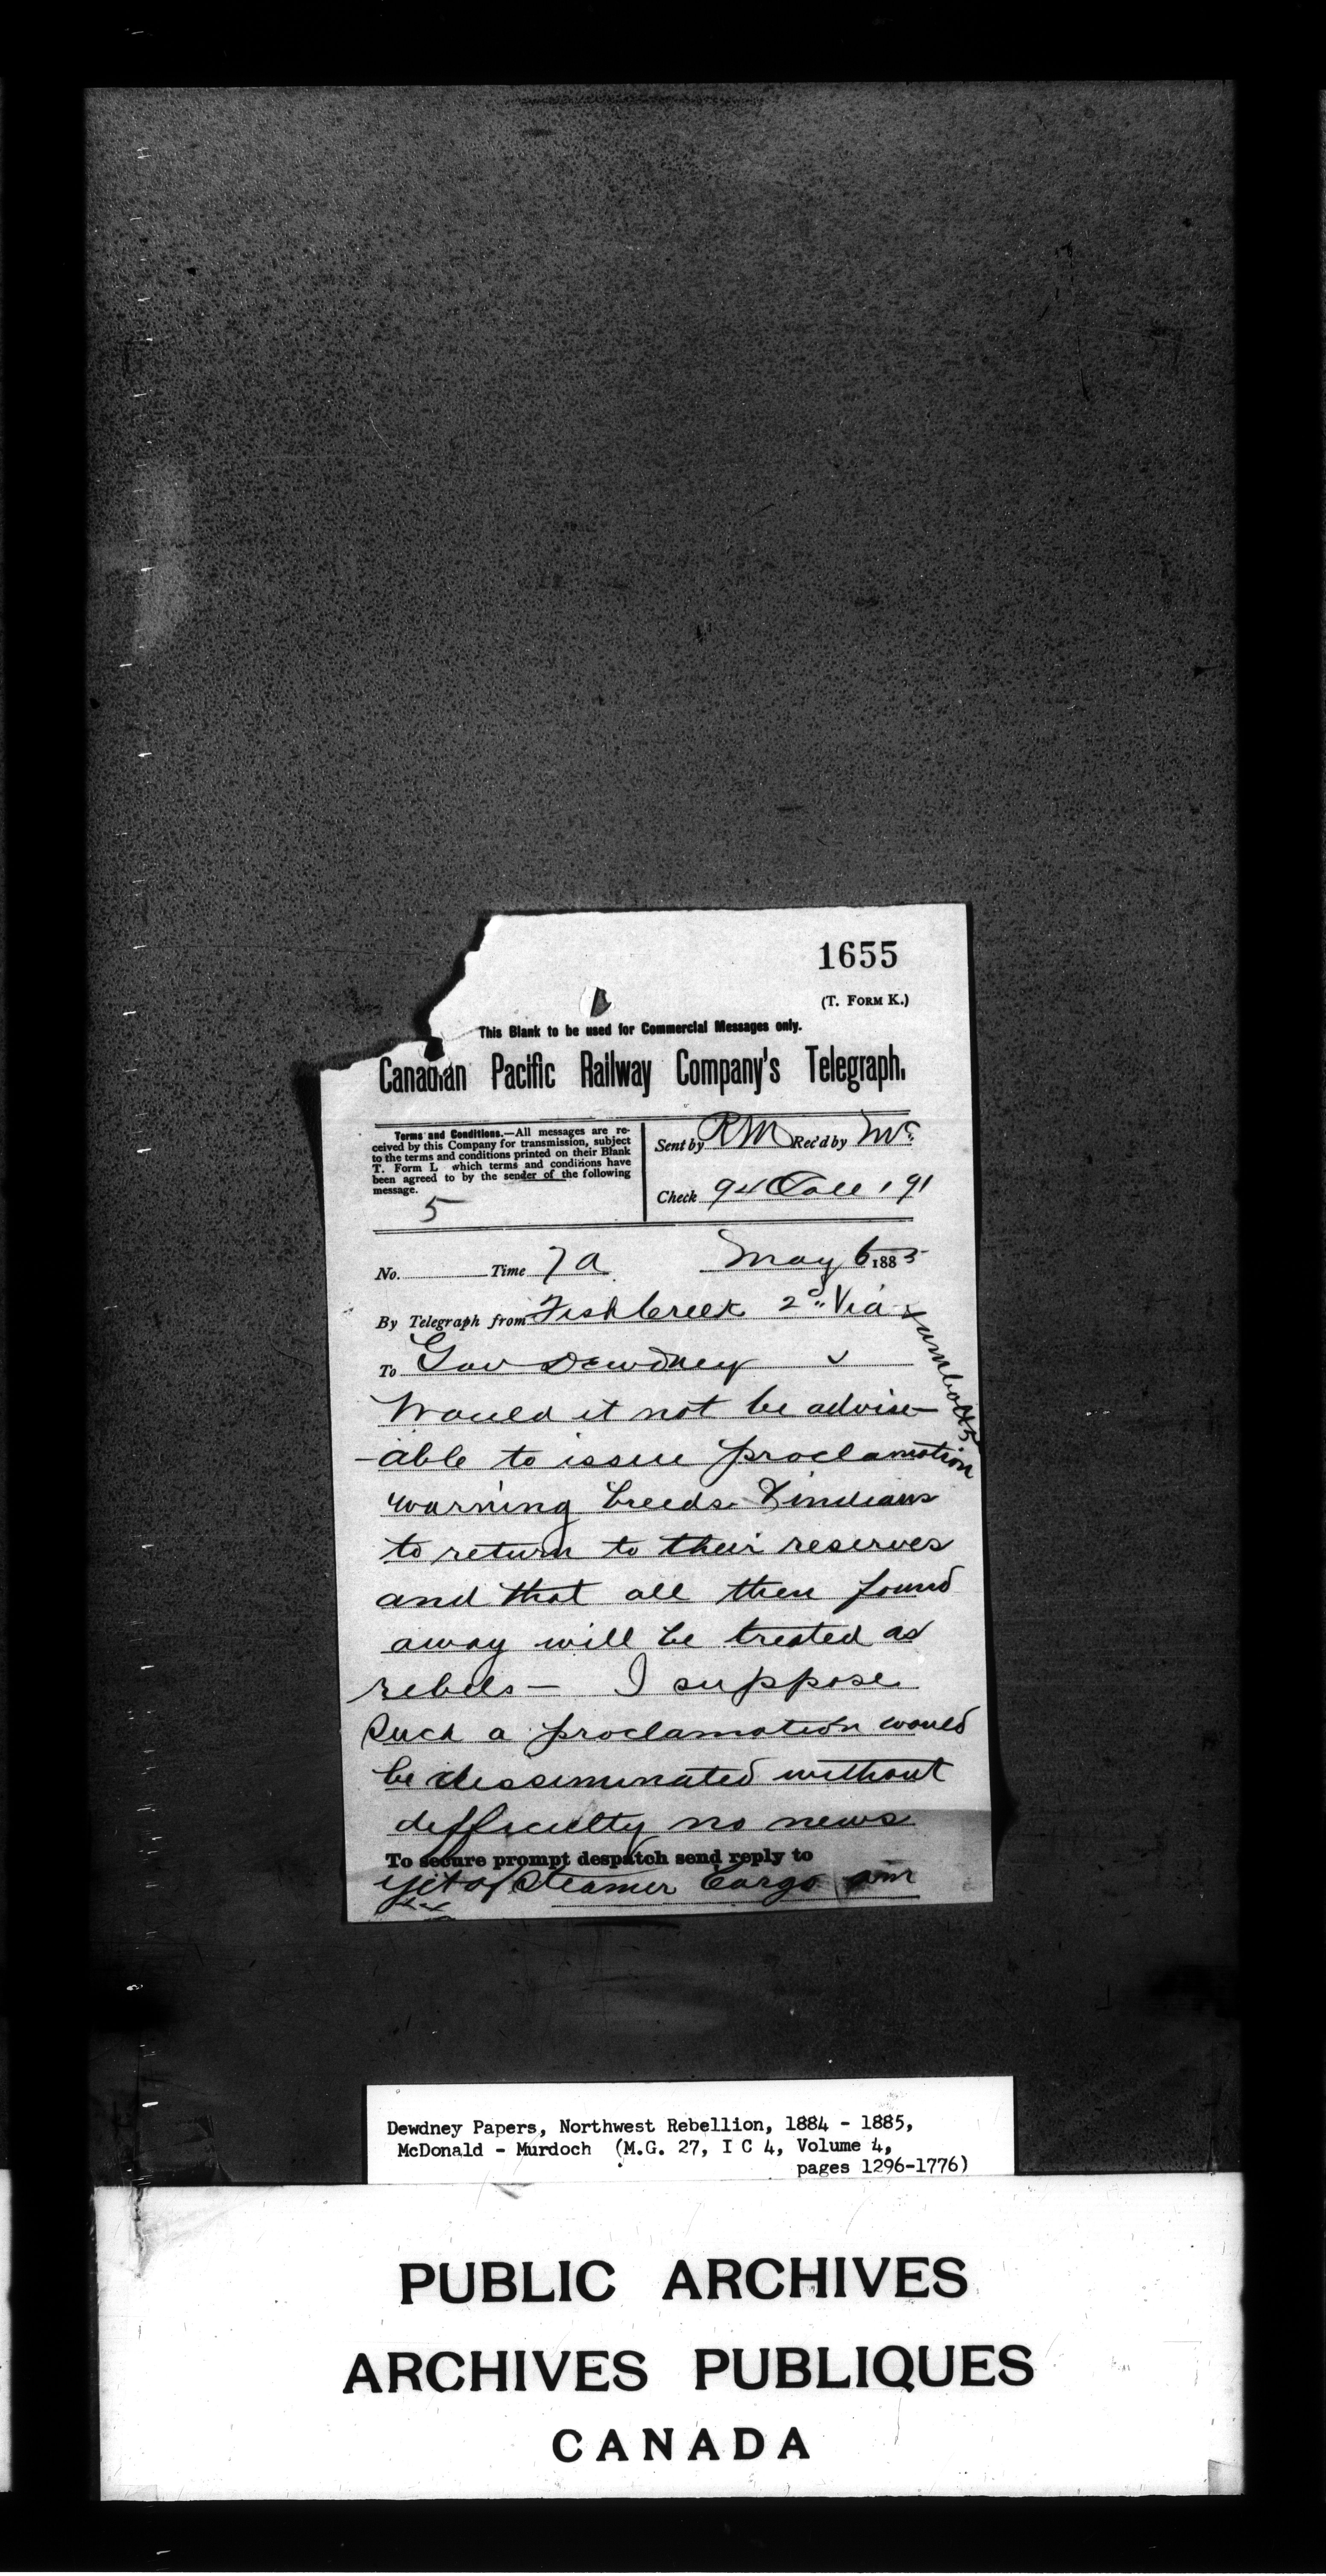 1655
(T. FORM K.)
This Blank to be used for Commercial Messages only.
Canadian Pacific Railway Company's Telegraph.
Terms and Conditions.—All messages are re-
ceived by this Company for transmission, subject
to the terms and conditions printed on their Blank
T. Form I, which terms and conditions have
been agreed to by the sender of the following
message.
5
Sent by RM Rec'd by Mc
Check 94 Coll 1 91
No. Time 7 a May 6 1885
By Telegraph from Fish Creek 2d Via Humboldt 5
To Gov Dewdney
Would it not be advise-
-able to issue proclamation
warning breeds & indians
to return to their reserves
and that all then found
away will be treated as
rebels— I suppose
Such a proclamation would
be disseminated without
difficulty no news
To secure prompt despatch send reply to
yet of Steamer Cargo am
Dewdney Papers, Northwest Rebellion, 1884 - 1885,
McDonald - Murdoch (M.G. 27, I C 4, Volume 4,
pages 1296-1776)
PUBLIC ARCHIVES
ARCHIVES PUBLIQUES
CANADA